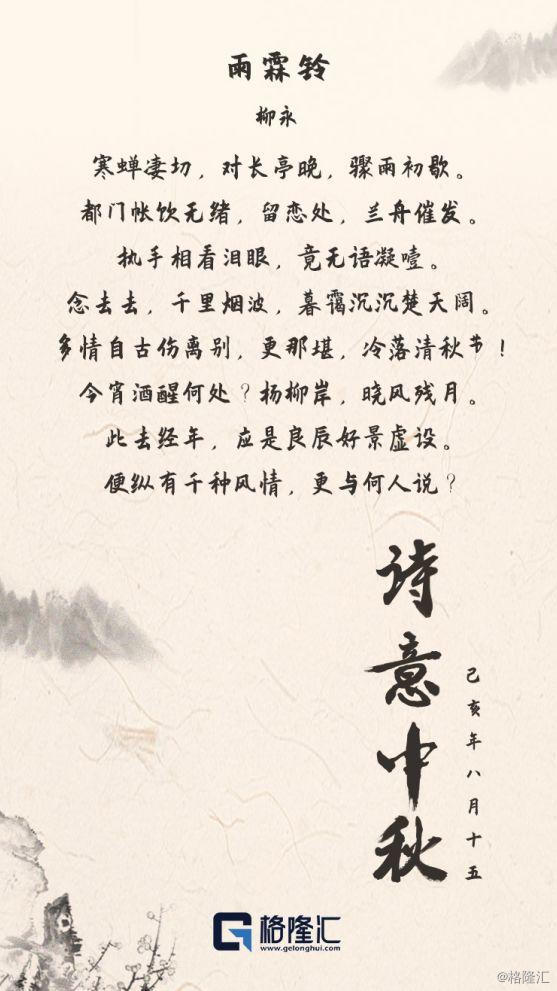 雨霖铃
柳永
寒蝉凄切，对长亭晚，骤雨初歇。
都门帐饮无绪，留恋处，兰舟催发。
执手相看泪眼，竟无语凝噎。
念去去，千里烟波，暮霭沉沉楚天阔。
多情自古伤离别，更那堪，冷落清秋节！
今宵酒醒何处？杨柳岸，晓风残月。
此去经年，应是良辰好景虚设。
便纵有千种风情，更与何人说？
诗意中秋
己亥年八月十五
格隆汇
www.gelonghui.com
@格隆汇